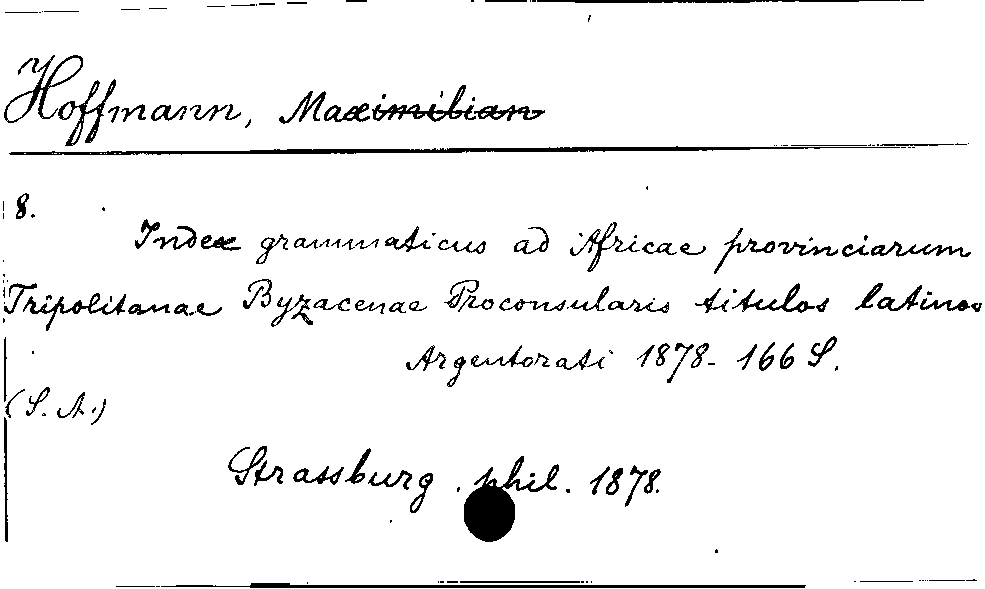 Hoffmann, Maximilian
8.
Index grammaticus ad Africae provinciarum
Tripolitanae Byzacenae Proconsularis titulos latinos
Argentorati 1878. 166 S.
(S. A.)
Strassburg. phil. 1878.